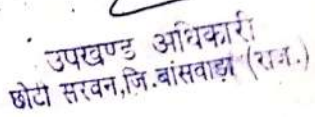 उपखण्ड अधिकारी
छोटी सरवन,जि.बांसवाडा (राज.)